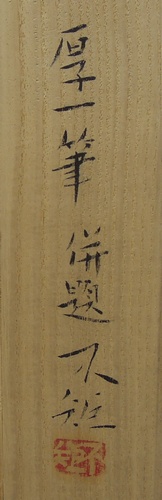 厚一筆 併題 不矩